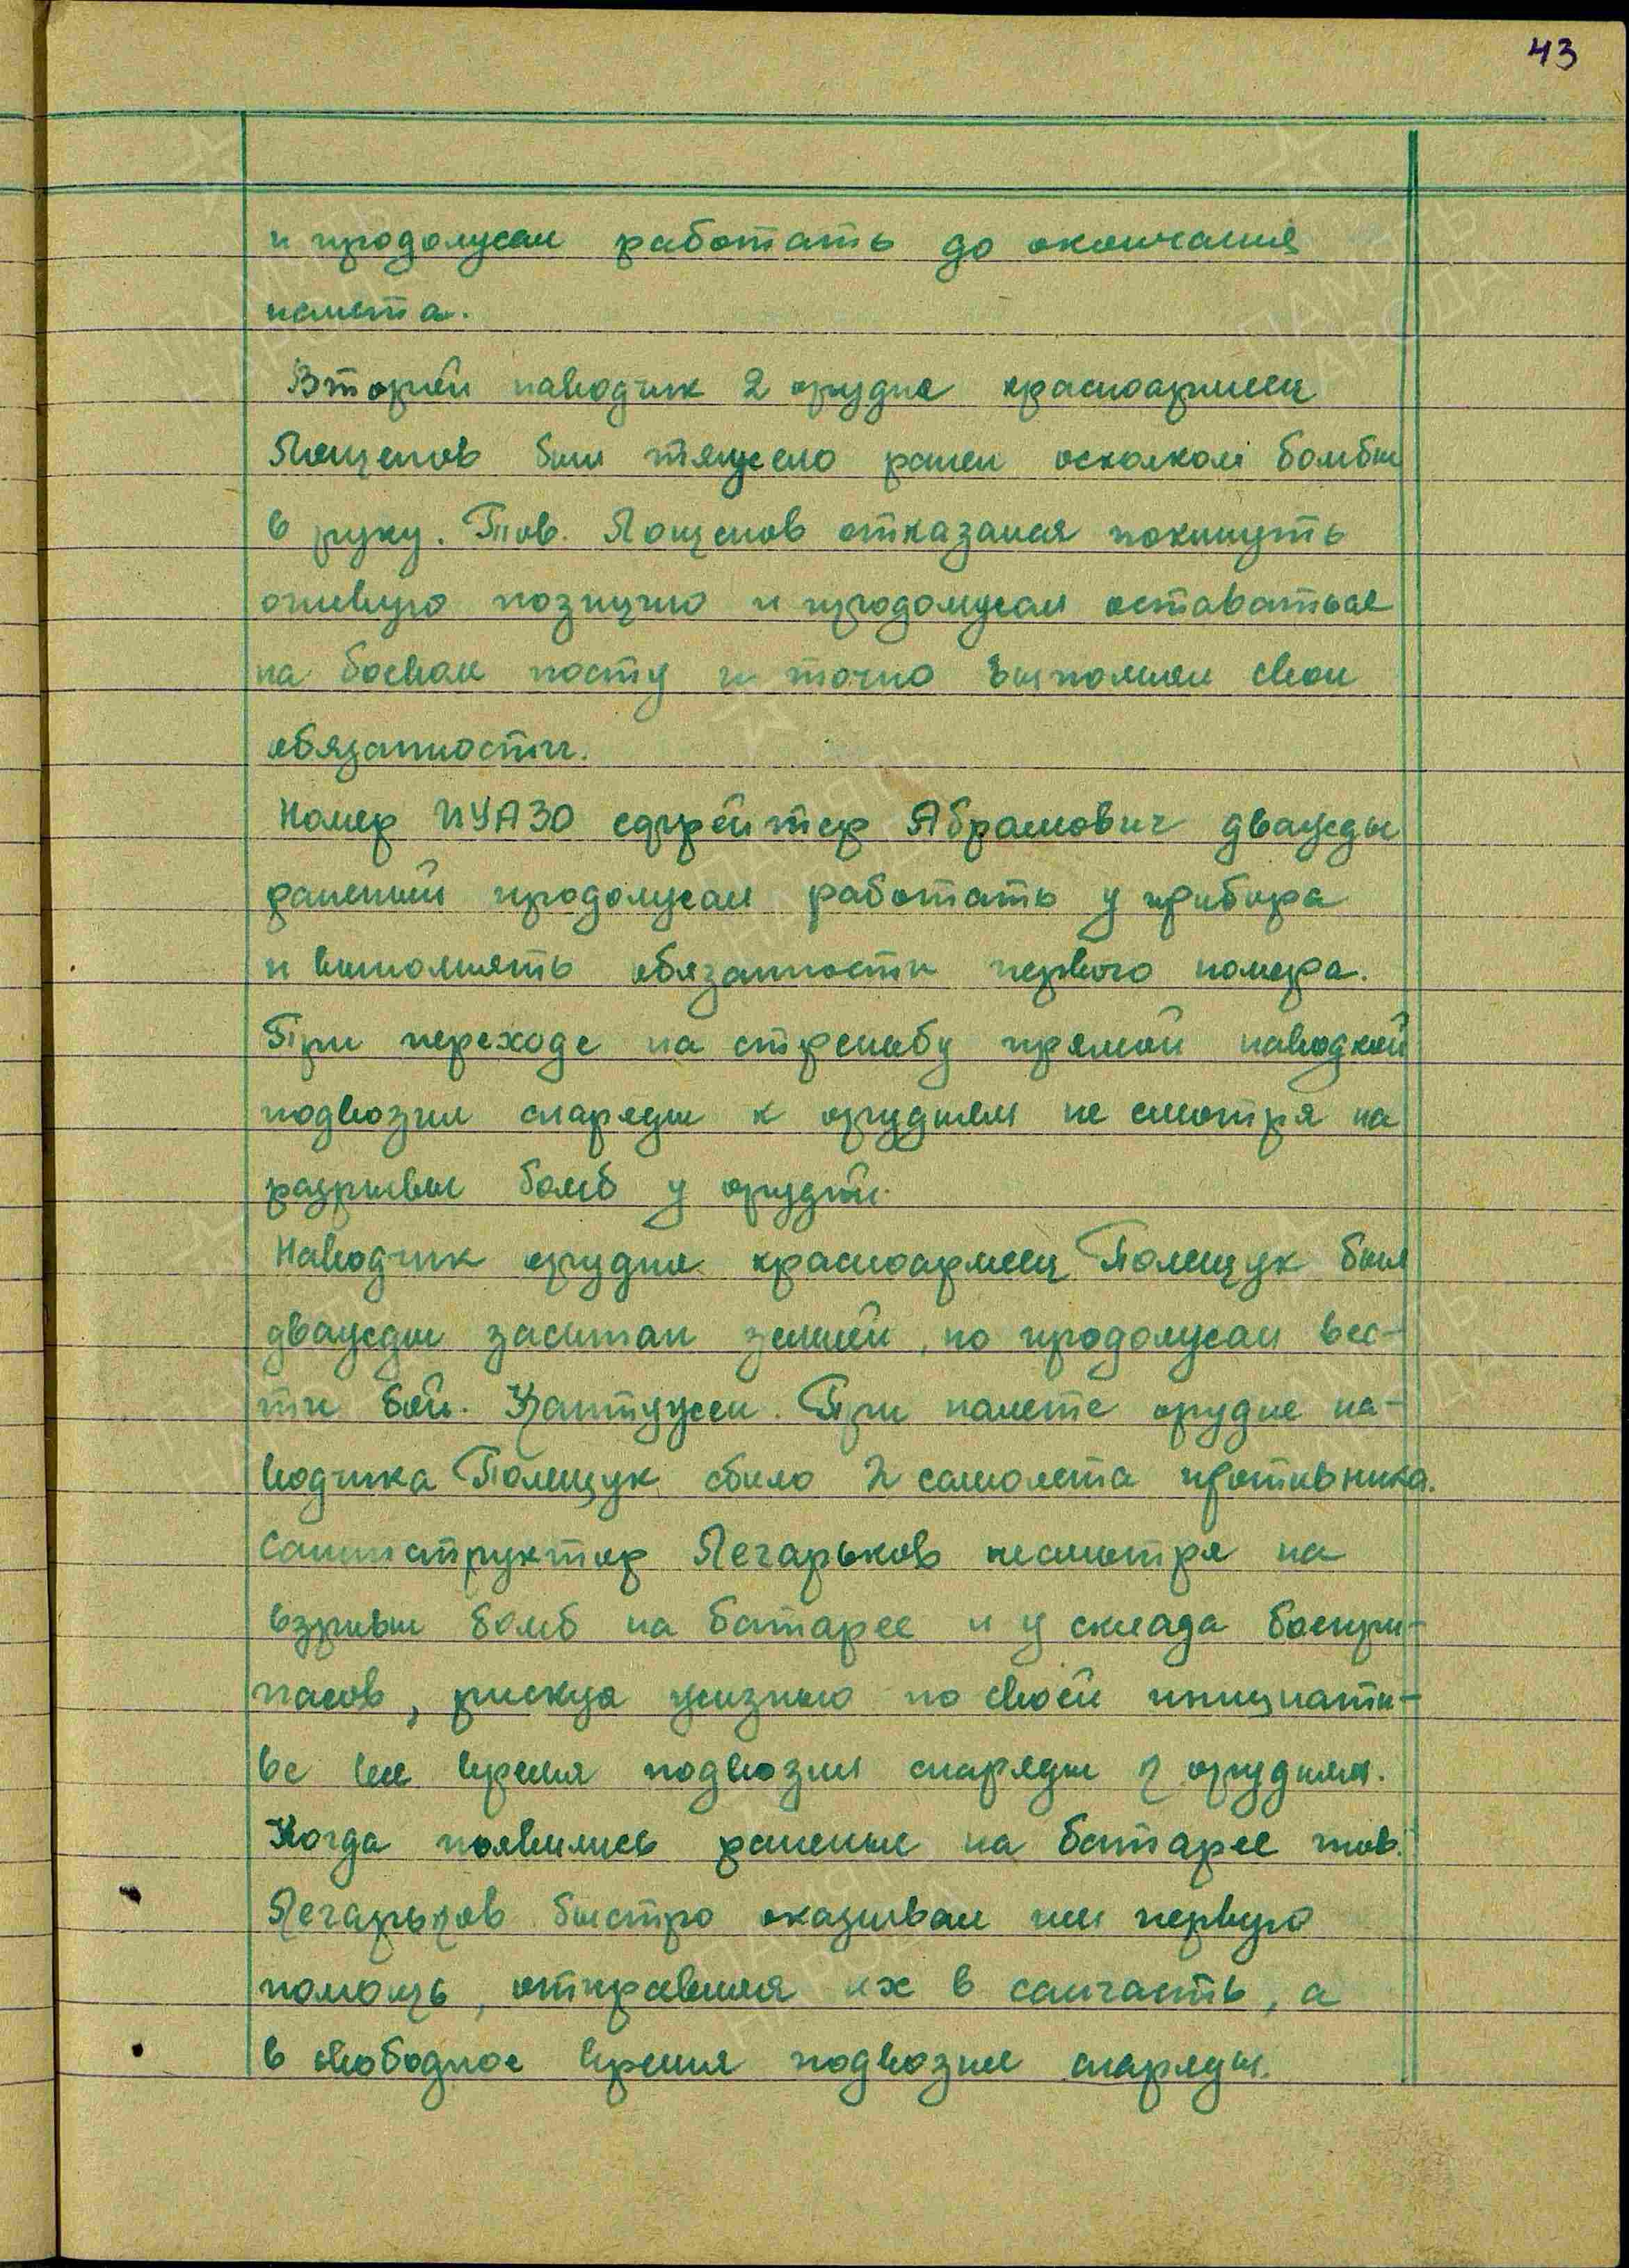 43
и продолжал работать до окончания
налета.
Второй наводчик 2 орудия красноармеец
Лощенов был тяжело ранен осколком бомбы
в руку. Тов. Лощенов отказался покинуть
огневую позицию и продолжал оставаться
на боевом посту и точно выполнял свои
обязанности.
Номер ПУАЗО ефрейтор Абрамович дважды
раненый продолжал работать у прибора
и выполнять обязанности первого номера.
При переходе на стрельбу прямой наводкой
подвозил снаряды к орудиям не смотря на
разрывы бомб у орудий.
Наводчик орудия красноармеец Полищук был
дважды засыпан землей, но продолжал вес-
ти бой. Контужен. При налете орудие на-
водчика Полищук сбило 2 самолета противника.
Санинструктор Легарьков несмотря на
взрывы бомб на батарее и у склада боепри-
пасов, рискуя жизнью по своей инициати-
ве все время подвозил снаряды к орудиям.
Когда появились раненые на батарее тов.
Легарьков быстро оказывал им первую
помощь, отправляя их в санчасть, а
в свободное время подвозил снаряды.
ПАМЯТЬ
НАРОДА